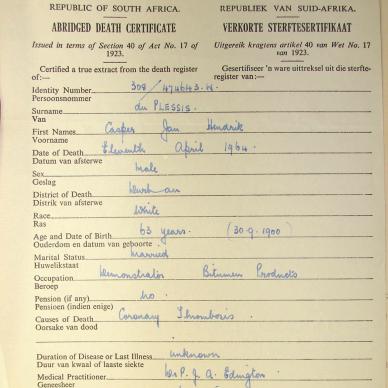 REPUBLIC OF SOUTH AFRICA. REPUBLIEK VAN SUID-AFRIKA.
ABRIDGED DEATH CERTIFICATE VERKORTE STERFTESERTIFIKAAT
Issued in terms of Section 40 of Act No. 17 of 1923. Uitgereik kragtens artikel 40 van Wet No. 17 van 1923.
Certified a true extract from the death register of:— Gesertifiseer 'n ware uittreksel uit die sterfteregister van:—
Identity Number 309/474643.W.
Persoonsnommer
Surname du PLESSIS.
Van
First Names Casper Jan Hendrik
Voorname
Date of Death Eleventh April 1964.
Datum van afsterwe
Sex Male
Geslag
District of Death Durban
Distrik van afsterwe
Race White
Ras
Age and Date of Birth 63 years. (30.9.1900)
Ouderdom en datum van geboorte
Marital Status Married
Huwelikstaat
Occupation Demonstrator Bitumen Products
Beroep
Pension (if any) No.
Pensioen (indien enige)
Causes of Death Coronary Thrombosis.
Oorsake van dood
Duration of Disease or Last Illness Unknown
Duur van kwaal of laaste siekte
Medical Practitioner Dr P. J. A. Edington
Geneesheer